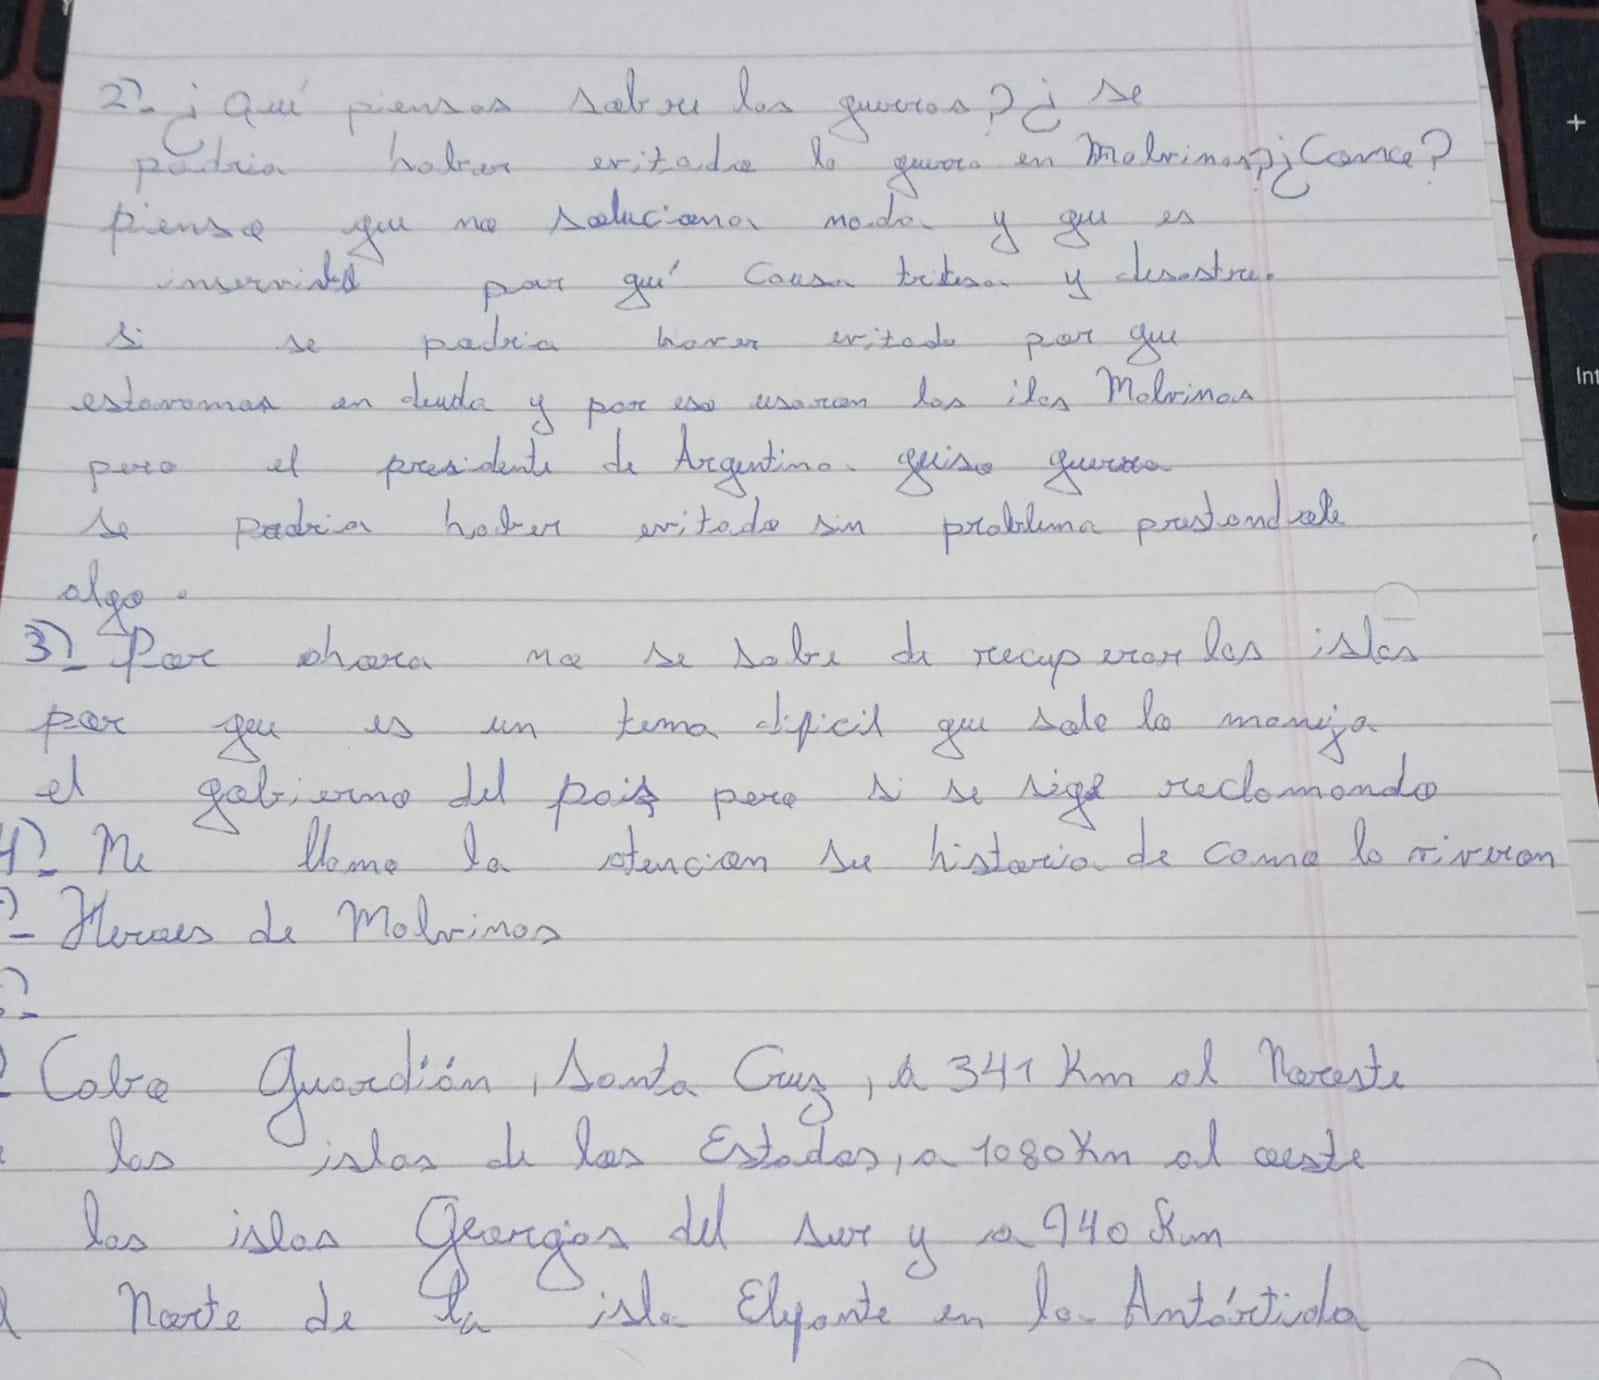 2)- ¿Qué piensas sobre las guerras? ¿se
podria haber evitado la guerra en Malvinas? ¿Como?
pienso que no soluciona nada y que es
por qué causa tritesa y desastre.
si se podria haver evitado por que
estavamos en deuda y por eso usaron las ilas Malvinas
pero el presidente de Argentina quiso guerra
se podria haber evitado sin problema prestandole
algo.
3)- Por ahora no se sabe de recuperar las islas
por que es un tema dificil que solo lo manija
el gobierno del país pero si se sige reclamando
4)- Me llamo la atencion su historia de como lo viveron
)- Heroes de Malvinas
)-
Cabo Guardián, Santa Cruz, a 341 Km al Noreste
las islas de los Estados, a 1080 Km al oeste
las islas Georgias del sur y a 940 Km
l Norte de la isla Elefante en la Antártida